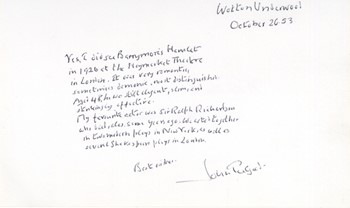 Wotton Underwood
October 26 83
Yes, I did see Barrymore's Hamlet
in 1926 at the Haymarket Theatre
in London. It was very romantic,
sometimes humorous, most distinguished.
Aged 48, he was still elegant,
strikingly effective.
My favourite actor was Sir Ralph Richardson
who died some years ago. We acted together
in two modern plays in New York, as well as
several Shakespeare plays in London.
Best wishes.
John Gielgud.